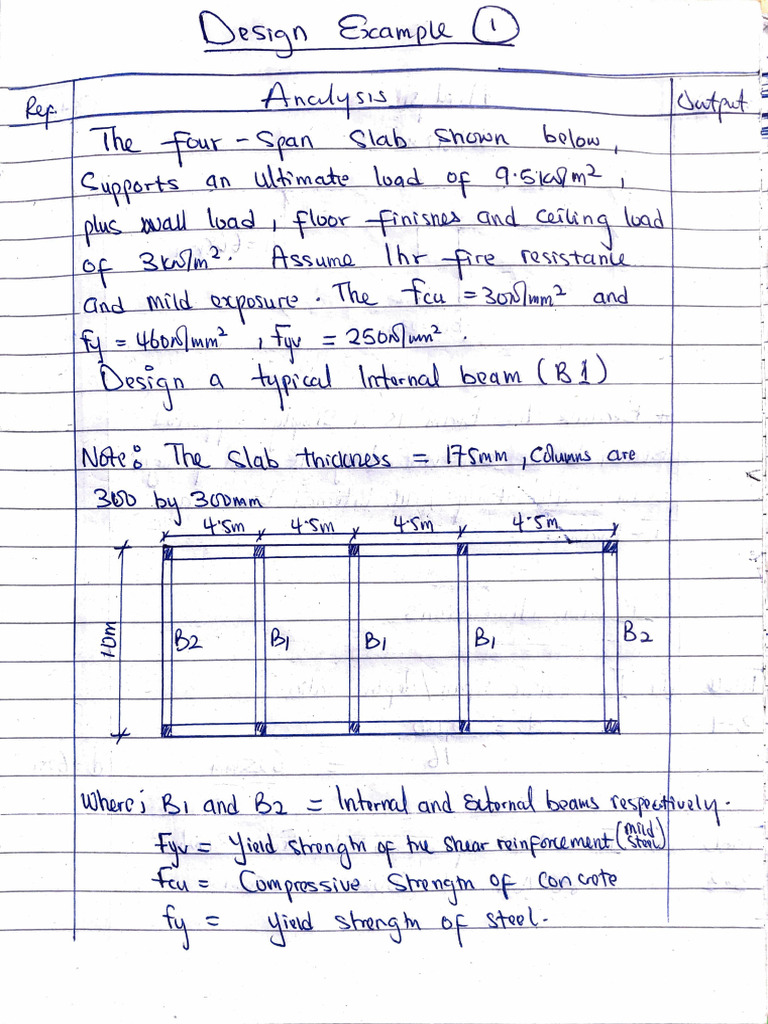 Design Example ①
Ref. Analysis Output
The four-span slab shown below,
supports an ultimate load of 9.5kN/m²,
plus wall load, floor finishes and ceiling load
of 3kN/m². Assume 1hr fire resistance
and mild exposure. The fcu = 30N/mm² and
fy = 460N/mm², fyv = 250N/mm².
Design a typical Internal beam (B1)
Note: The slab thickness = 175mm, columns are
300 by 300mm
4.5m 4.5m 4.5m 4.5m
10m
B2 B1 B1 B1 B2
Where; B1 and B2 = Internal and External beams respectively.
Fyv = Yield strength of the shear reinforcement (mild steel)
fcu = Compressive Strength of concrete
fy = Yield strength of steel.